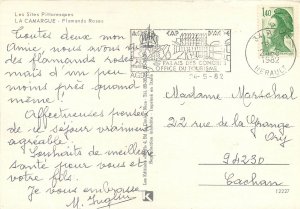 Les Sites Pittoresques
LA CAMARGUE - Flamands Roses
Toutes deux mon
Amie, nous avons vu
des flamands roses
mais d'un peu
moins près quand
même !
Affectueuses pensées
de ce séjour vraiment
agréable !
Souhaits de meilleure
santé pour vous et
votre fils.
Je vous embrasse
CAP D'AGDE
PALAIS DES CONGRES
OFFICE DU TOURISME
-5-82
1,40
1982
HERAULT
Madame Maréchal
22 rue de la Grange
Ory
94230
Cachan